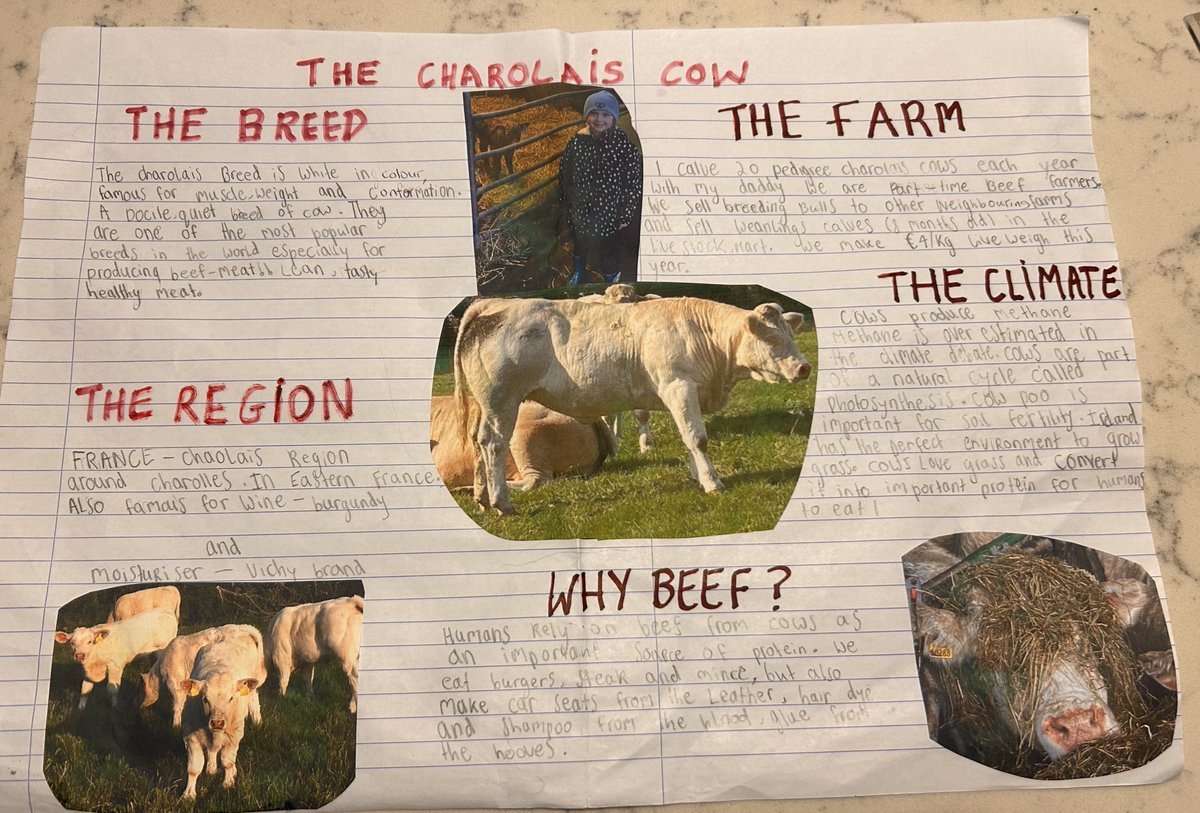 THE CHAROLAIS COW
THE BREED
The charolais Breed is white in colour,
famous for muscle, weight and conformation.
A Docile, quiet breed of cow. They
are one of the most popular
breeds in the world especially for
producing beef-meat. Lean, tasty
healthy meat.
THE REGION
FRANCE - Chaolais Region
around charolles. In Eastern France.
ALSO famous for wine - burgundy
and
moisturiser - Vichy brand
THE FARM
I calve 20 pedigree charolais cows each year
with my daddy. We are Part-time Beef farmers.
We sell breeding Bulls to other Neighbouring farms
and sell weanlings calves (8 months old) in the
Livestock, Mart. We make €4/kg live weigh this
year.
THE CLIMATE
COWS produce methane
methane is over estimated in
the climate debate. Cows are part
of a natural cycle called
Photosynthesis. Cow poo is
important for soil fertility. Ireland
has the perfect environment to grow
grass. cows Love grass and convert
it into important protein for humans
to eat!
WHY BEEF?
Humans Rely on beef from cows as
an important source of protein. We
eat burgers, steak and mince, but also
make car seats from the Leather, hair dye
and shampoo from the blood, glue from
the hooves.